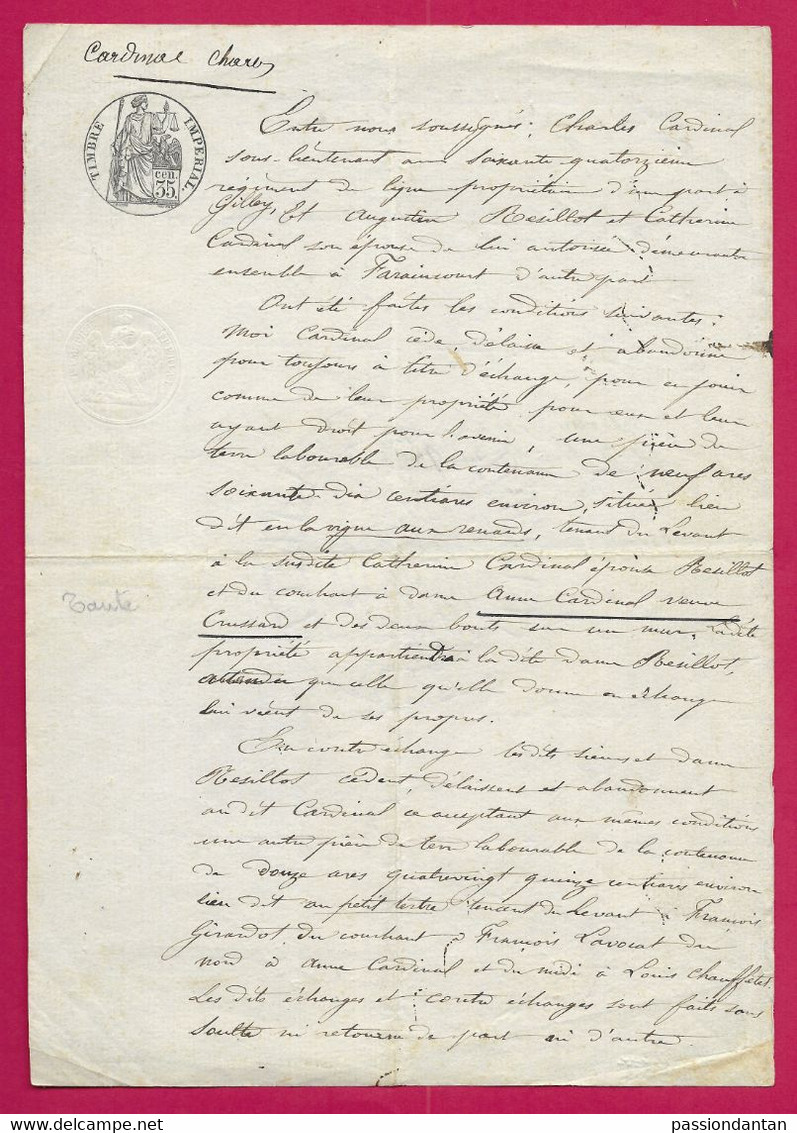 Cardinal Charles
TIMBRE IMPÉRIAL.
cen.
35.
Entre nous soussignés; Charles Cardinal
sous-lieutenant au soixante-quatorzième
régiment de ligne propriétaire d'une part à
Gilley, Et Augustin Resillot et Catherine
Cardinal son épouse de lui autorisée demeurants
ensemble à Faraincourt d'autre part
Ont été faites les conditions suivantes:
Moi Cardinal cède, délaisse et abandonne
pour toujours à titre d'échange, pour en jouir
comme de leur propriété pour eux et leur
ayant droit pour l'avenir, une pièce de
terre labourable de la contenance de neuf ares
soixante-dix centiares environ, située lieu
dit en la vigne aux renards, tenant du Levant
à la susdite Catherine Cardinal épouse Resillot
et du couchant à dame Anne Cardinal veuve
Tante
Crussard et des deux bouts sur un mur. La dite
propriété appartiendra à la dite dame Resillot,
attendu que celle qu'elle donne en échange
lui vient de ses propres.
En contre échange les dits sieur et dame
Resillot cèdent, délaissent et abandonnent
au dit Cardinal ce acceptant aux mêmes conditions
une autre pièce de terre labourable de la contenance
de douze ares quatrevingt quinze centiares environ
lieu dit au petit tertre tenant du Levant à François
Girardot, du couchant à François Lavocat du
nord à Anne Cardinal et du midi à Louis Chauffetet.
Les dits échanges et contre échanges sont faits sans
soulte ni retour de part ni d'autre.
passiondantan